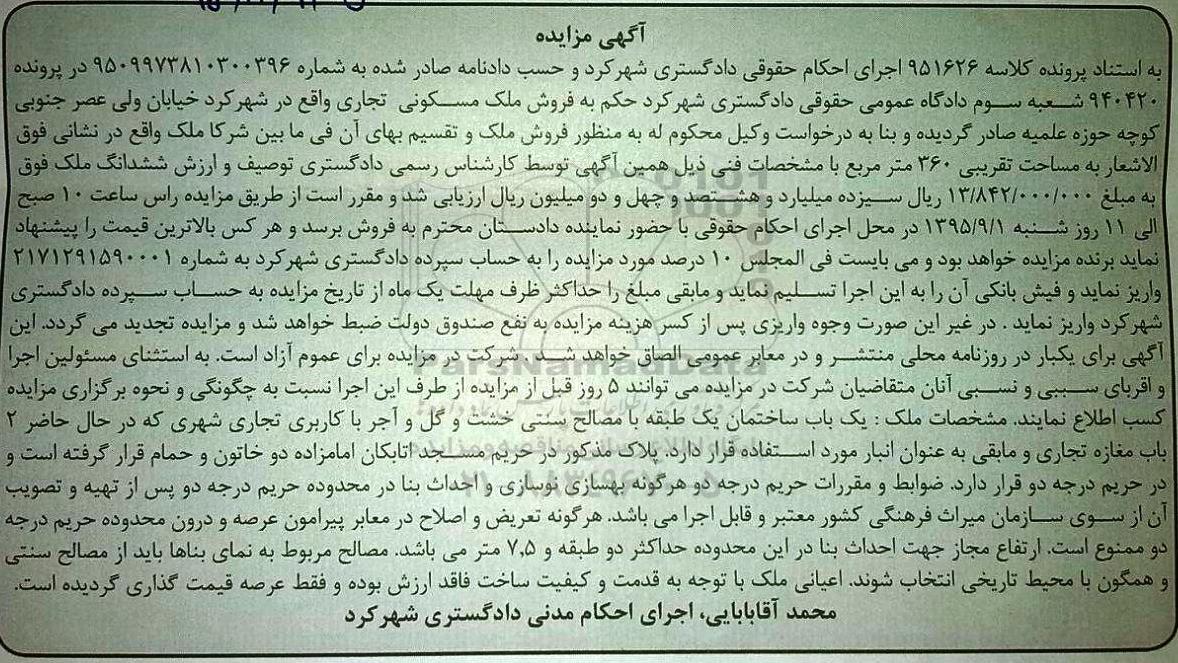 آگهی مزایده
به استناد پرونده کلاسه ۹۵۱۶۲۶ اجرای احکام حقوقی دادگستری شهرکرد و حسب دادنامه صادر شده به شماره ۹۵۰۹۹۷۳۸۱۰۳۰۰۳۹۶ در پرونده
۹۴۰۴۲۰ شعبه سوم دادگاه عمومی حقوقی دادگستری شهرکرد حکم به فروش ملک مسکونی تجاری واقع در شهرکرد خیابان ولی عصر جنوبی
کوچه حوزه علمیه صادر گردیده و بنا به درخواست وکیل محکوم له به منظور فروش ملک و تقسیم بهای آن فی ما بین شرکا ملک واقع در نشانی فوق
الاشعار به مساحت تقریبی ۳۶۰ متر مربع با مشخصات فنی ذیل همین آگهی توسط کارشناس رسمی دادگستری توصیف و ارزش ششدانگ ملک فوق
به مبلغ ۱۳/۸۴۲/۰۰۰/۰۰۰ ریال سیزده میلیارد و هشتصد و چهل و دو میلیون ریال ارزیابی شد و مقرر است از طریق مزایده راس ساعت ۱۰ صبح
الی ۱۱ روز شنبه ۱۳۹۵/۹/۱ در محل اجرای احکام حقوقی با حضور نماینده دادستان محترم به فروش برسد و هر کس بالاترین قیمت را پیشنهاد
نماید برنده مزایده خواهد بود و می بایست فی المجلس ۱۰ درصد مورد مزایده را به حساب سپرده دادگستری شهرکرد به شماره ۲۱۷۱۲۹۱۵۹۰۰۰۱
واریز نماید و فیش بانکی آن را به این اجرا تسلیم نماید و مابقی مبلغ را حداکثر ظرف مهلت یک ماه از تاریخ مزایده به حساب سپرده دادگستری
شهرکرد واریز نماید . در غیر این صورت وجوه واریزی پس از کسر هزینه مزایده به نفع صندوق دولت ضبط خواهد شد و مزایده تجدید می گردد. این
آگهی برای یکبار در روزنامه محلی منتشر و در معابر عمومی الصاق خواهد شد . شرکت در مزایده برای عموم آزاد است. به استثنای مسئولین اجرا
و اقربای سببی و نسبی آنان متقاضیان شرکت در مزایده می توانند ۵ روز قبل از مزایده از طرف این اجرا نسبت به چگونگی و نحوه برگزاری مزایده
کسب اطلاع نمایند. مشخصات ملک : یک باب ساختمان یک طبقه با مصالح سنتی خشت و گل و آجر با کاربری تجاری شهری که در حال حاضر ۲
باب مغازه تجاری و مابقی به عنوان انبار مورد استفاده قرار دارد. پلاک مذکور در حریم مسجد اتابکان امامزاده دو خاتون و حمام قرار گرفته است و
در حریم درجه دو قرار دارد. ضوابط و مقررات حریم درجه دو هرگونه بهسازی نوسازی و احداث بنا در محدوده حریم درجه دو پس از تهیه و تصویب
آن از سوی سازمان میراث فرهنگی کشور معتبر و قابل اجرا می باشد. هرگونه تعریض و اصلاح در معابر پیرامون عرصه و درون محدوده حریم درجه
دو ممنوع است. ارتفاع مجاز جهت احداث بنا در این محدوده حداکثر دو طبقه و ۷٫۵ متر می باشد. مصالح مربوط به نمای بناها باید از مصالح سنتی
و همگون با محیط تاریخی انتخاب شوند. اعیانی ملک با توجه به قدمت و کیفیت ساخت فاقد ارزش بوده و فقط عرصه قیمت گذاری گردیده است.
محمد آقابابایی، اجرای احکام مدنی دادگستری شهرکرد
ParsNamadData